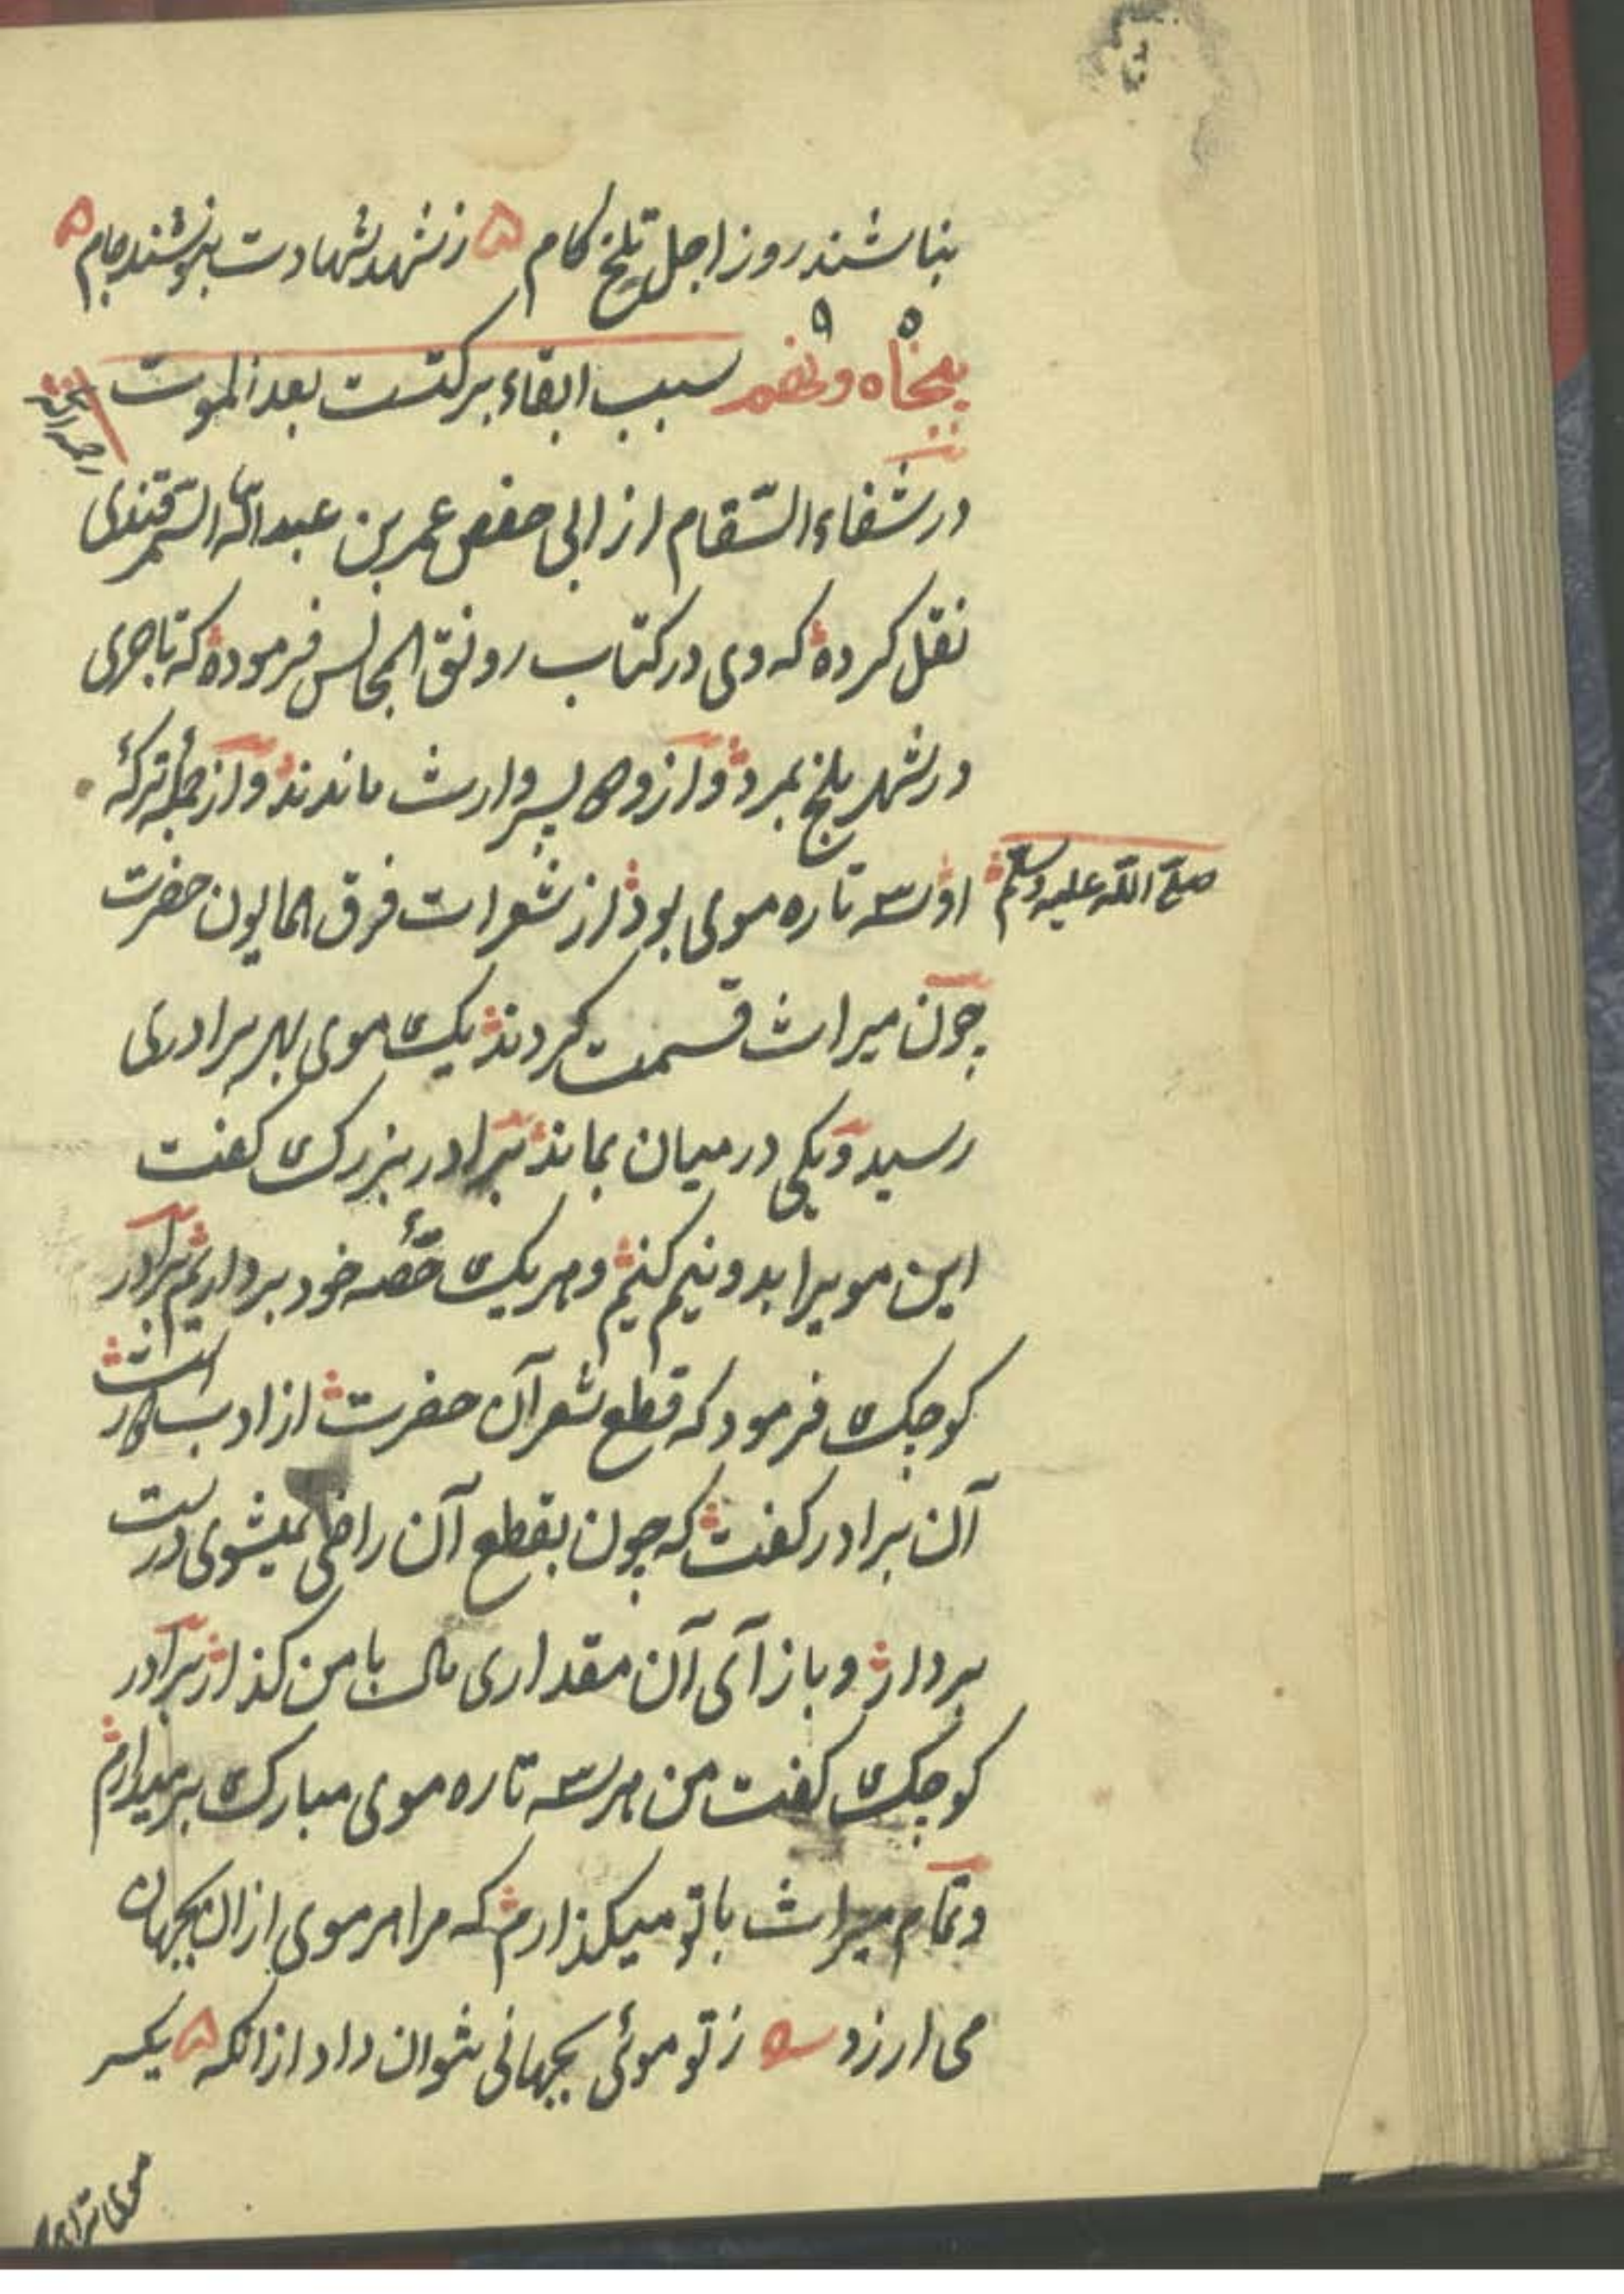 بناشند روز اجل تلخ کام ۵ ز شهد شهادت بنوشند جام ۵
۵ ۹
پنجاه و نهم سبب ابقاء برکتست بعد الموت
در شفاء السّقام از ابی حفص عمر بن عبد الله السّمرقندی
نقل کرده که وی در کتاب رونق المجالس فرموده که تاجری
در شهر بلخ بمرد و از و دو پسر وارث ماندند و از جمله ترکهٔ
او سه تاره موی بود از شعرات فرق همایون حضرت صلی الله علیه وسلم
چون میراث قسمت کردند یک موی بهر برادری
رسید و یکی در میان بماند برادر بزرک کفت
این مویرا بدو نیم کنیم و هر یک حصّهٔ خود برداریم برادر
کوچک فرمود که قطع شعر آن حضرت از ادب دور است
آن برادر کفت که چون بقطع آن راضی نمیشوی درست
بردار و باز آی آن مقداری مال با من کذار برادر
کوچک کفت من هر سه تاره موی مبارک برمیدارم
و تمام میراث با تو میکذارم که مرا هر موی ازان بجهان
می ارزد ــه ز تو موئی بجهانی نتوان داد ازانکه ۵ یکسر
موی ترا